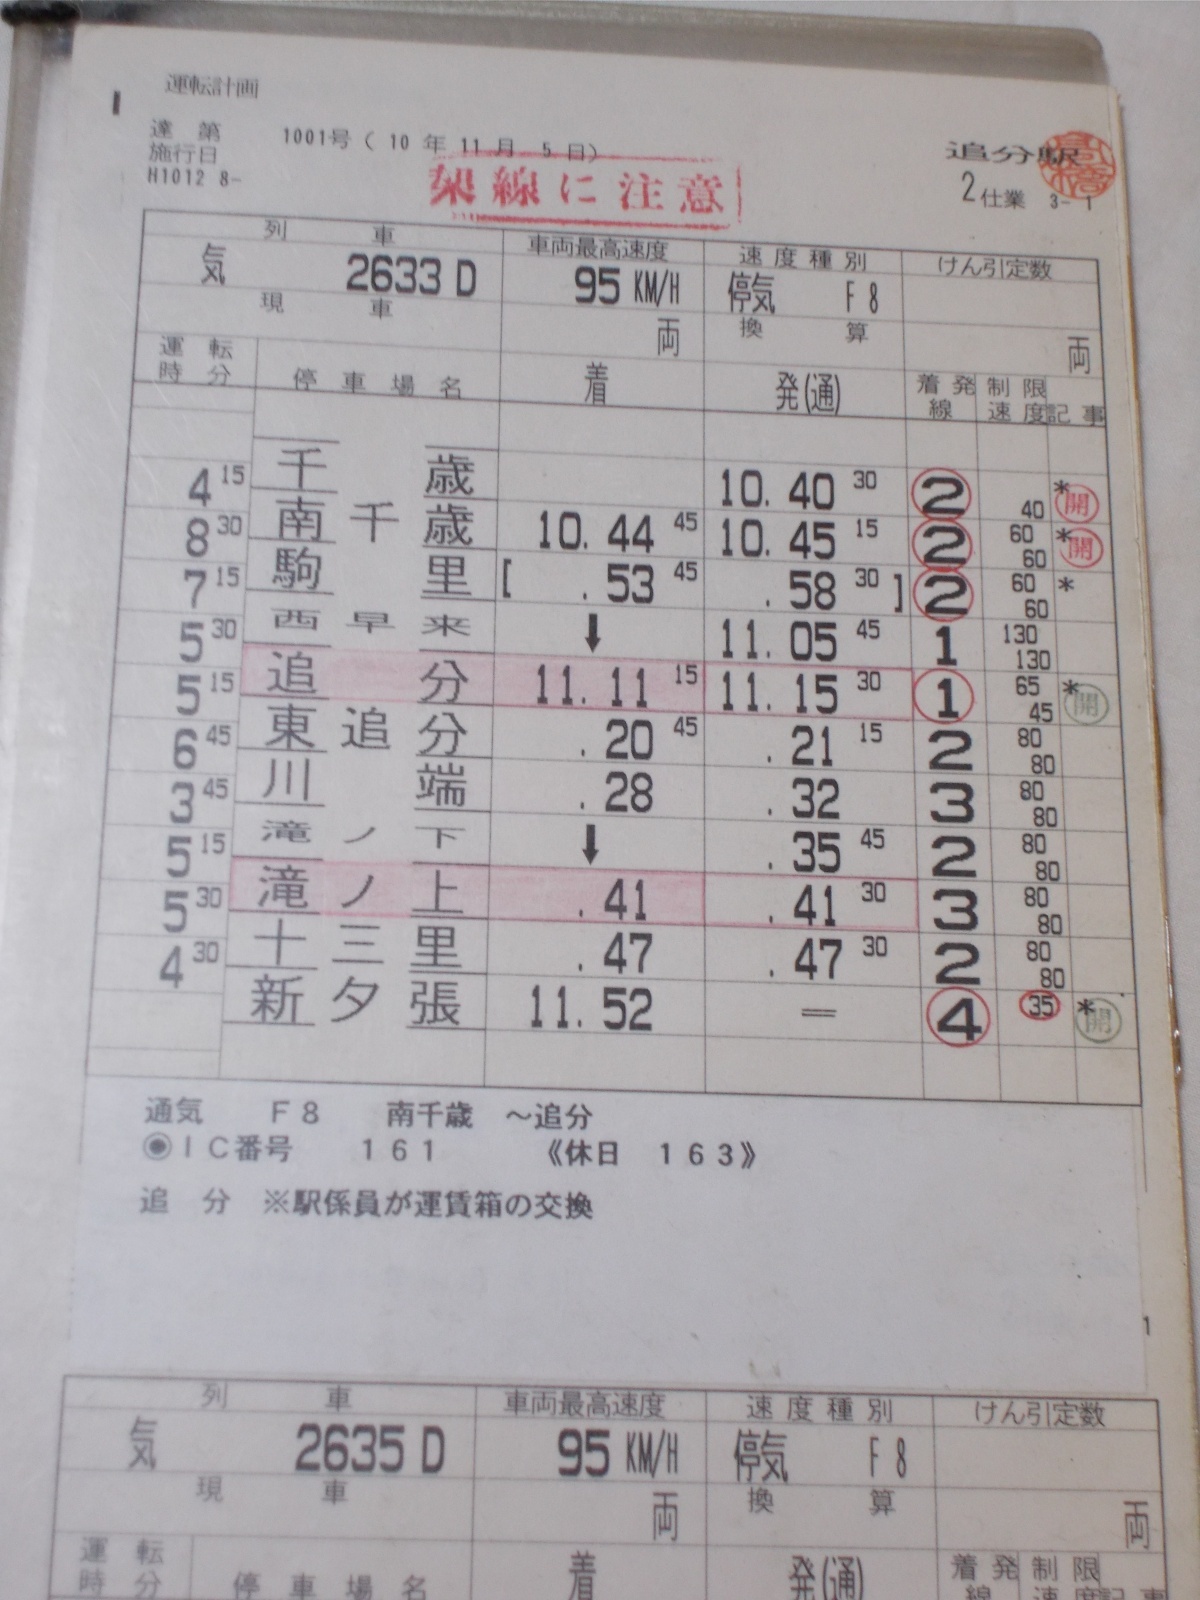 運転計画
達 第 1001号( 10 年 11 月 5 日)
施行日
H1012 8-
架線に注意
追分駅
2仕業 3- 1
列 車 車両最高速度 速度種別 けん引定数
気 2633D 95 KM/H 停気 F8
現 車 両 換 算 両
運転時分 停車場名 着 発(通) 着発線 制限速度 記事
千 歳 10.40 30 2 40 * 開
4 15
南千歳 10.44 45 10.45 15 2 60 60 * 開
8 30
駒 里 [ .53 45 .58 30 ] 2 60 60 *
7 15
西早来 ↓ 11.05 45 1 130 130
5 30
追 分 11.11 15 11.15 30 1 65 45 * 開
5 15
東追分 .20 45 .21 15 2 80 80
6 45
川 端 .28 .32 3 80 80
3 45
滝ノ下 ↓ .35 45 2 80 80
5 15
滝ノ上 .41 .41 30 3 80 80
5 30
十三里 .47 .47 30 2 80 80
4 30
新夕張 11.52 = 4 35 * 開
通気 F8 南千歳 ~追分
◉IC番号 161 《休日 163》
追 分 ※駅係員が運賃箱の交換
1
列 車 車両最高速度 速度種別 けん引定数
気 2635D 95 KM/H 停気 F8
現 車 両 換 算 両
運転時分 停車場名 着 発(通) 着発線 制限速度 記事